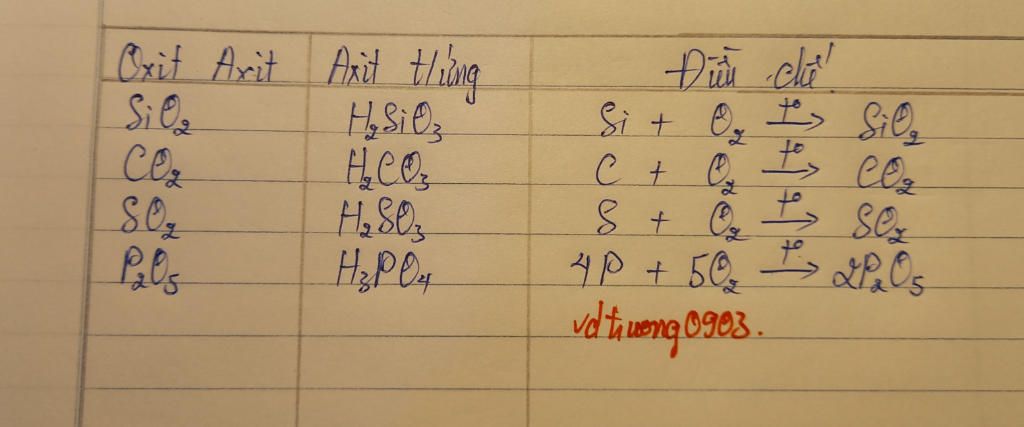 Oxit Axit Axit t/ứng Điều chế
SiO₂ H₂SiO₃ Si + O₂ t° → SiO₂
CO₂ H₂CO₃ C + O₂ t° → CO₂
SO₂ H₂SO₃ S + O₂ t° → SO₂
P₂O₅ H₃PO₄ 4P + 5O₂ t° → 2P₂O₅
vdtruong0903.